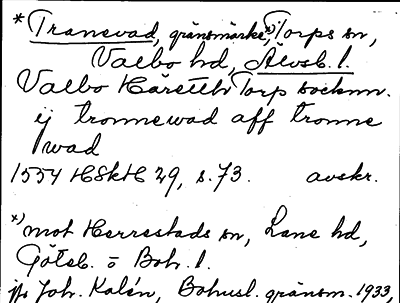 * Tranevad, gränsmärke,*) Torps sn,
Valbo hd, Älvsb. l.
Valbo Häreth Torp socknn.
ij tronnewad aff tronne
wad
1554 HSkH 29, s. 73. avskr.
*) mot Herrestads sn, Lane hd,
Göteb. o Boh. l.
jfr Joh. Kalén, Bohusl. gränsm. 1933,